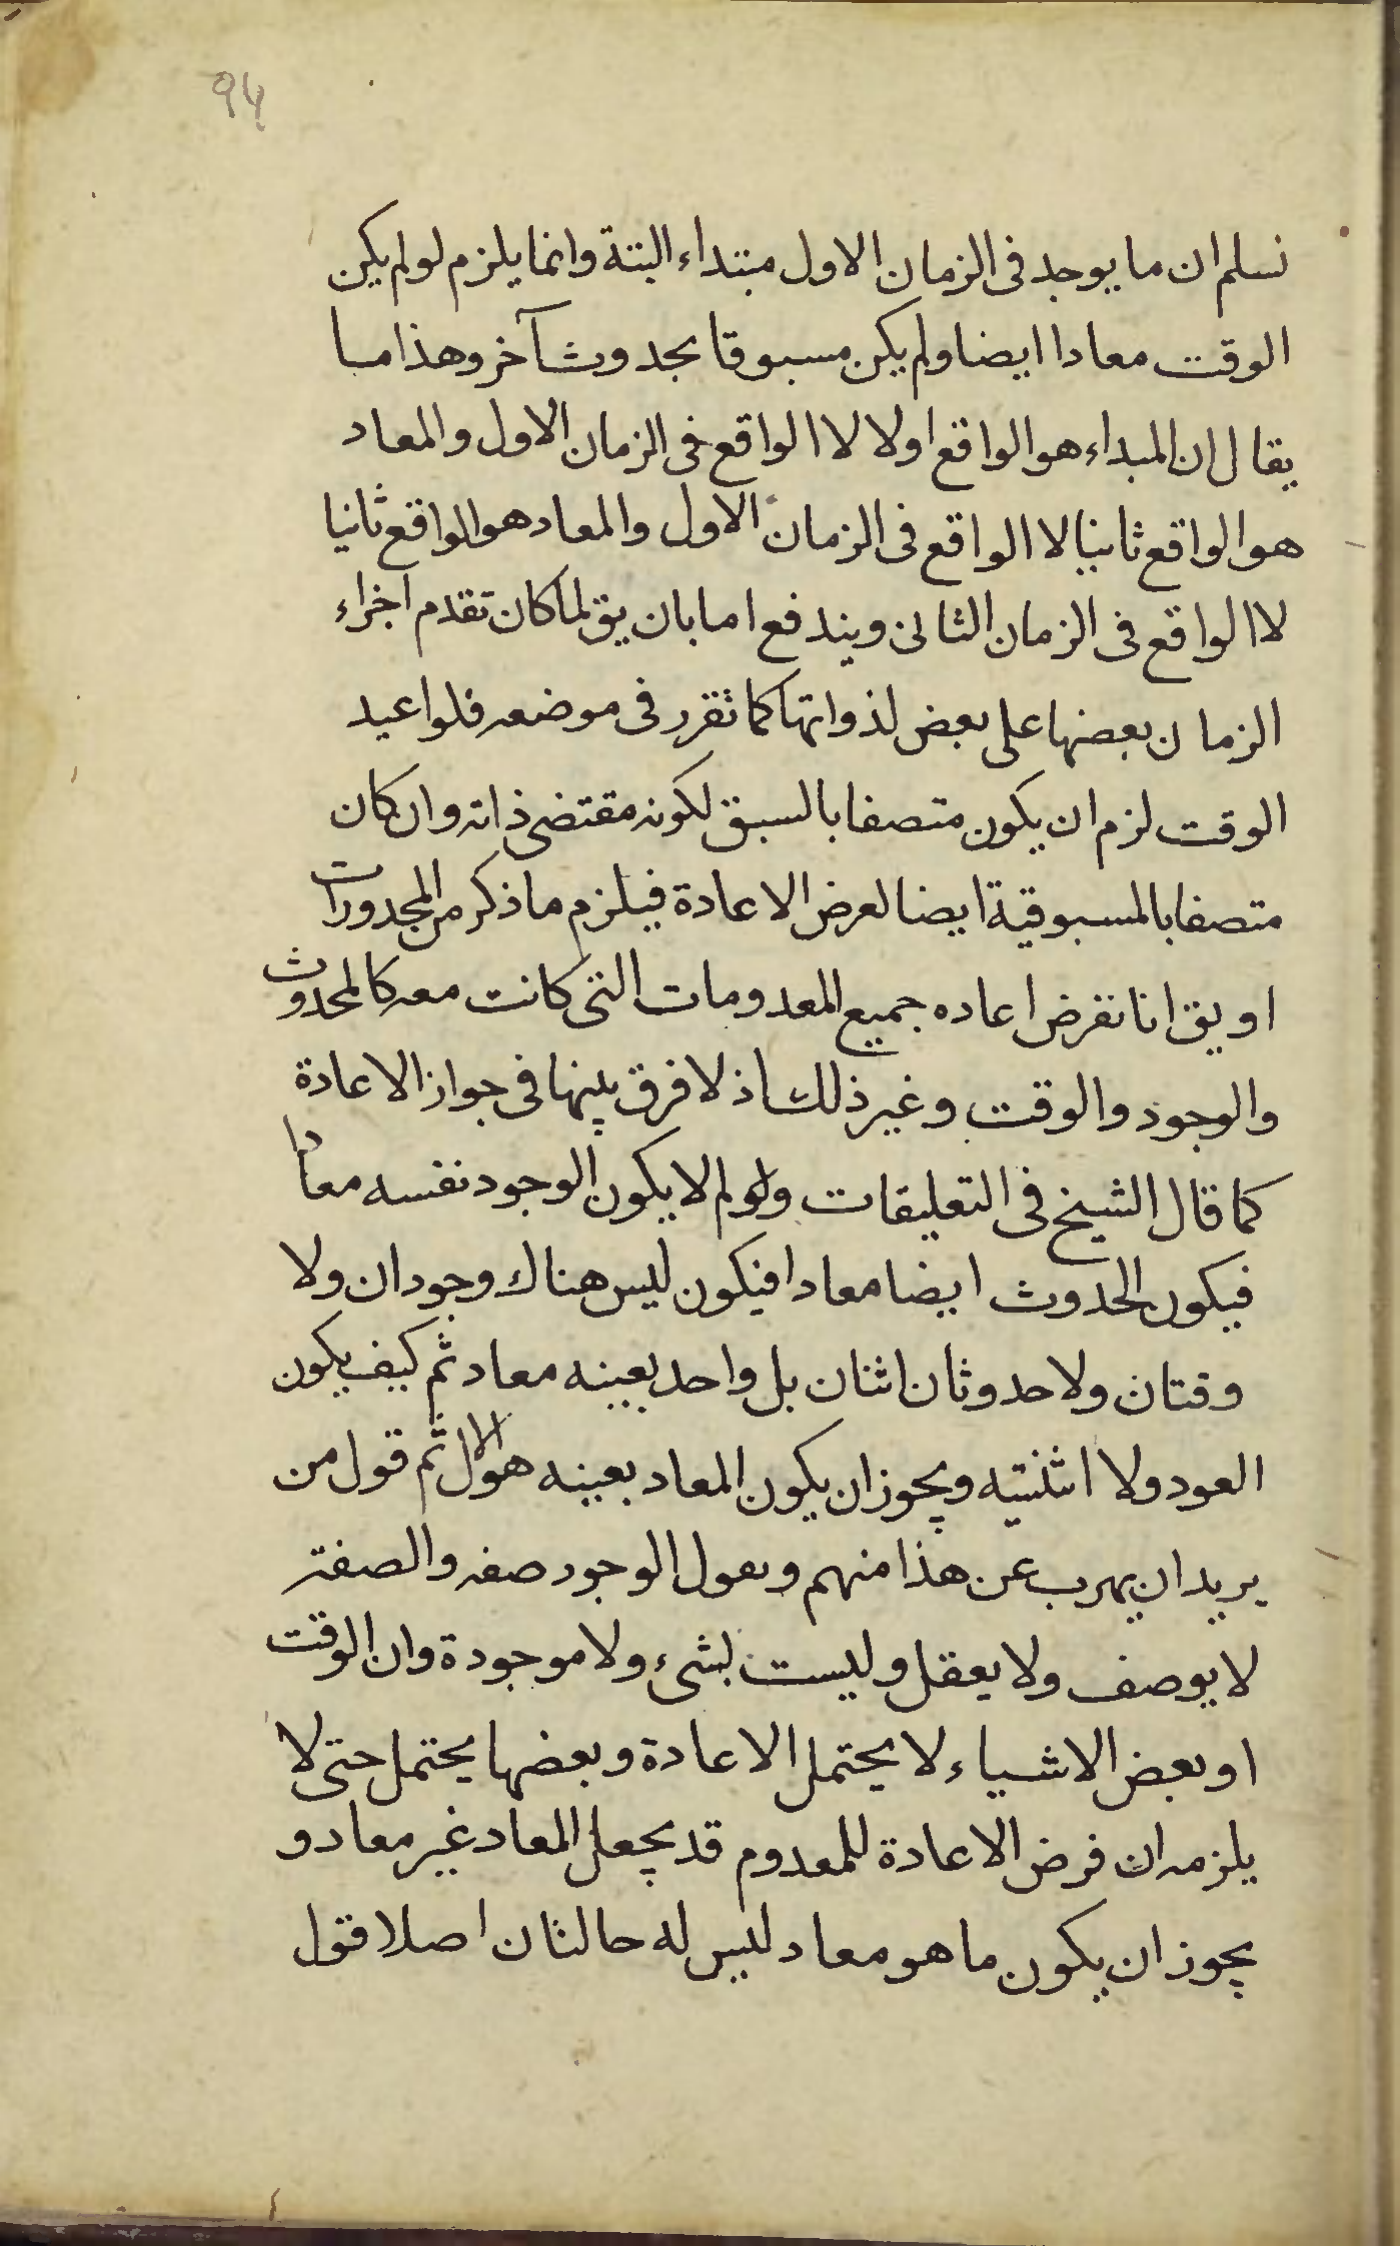 94
نسلم ان ما يوجد فى الزمان الاول مبتداء البتة وانما يلزم لو لم يكن
الوقت معادا ايضا ولم يكن مسبوقا بحدوث آخر وهذا ما
يقال ان المبداء هو الواقع اولا لا الواقع فى الزمان الاول والمعاد
هو الواقع ثانيا لا الواقع فى الزمان الاول والمعاد هو الواقع ثانيا
لا الواقع فى الزمان الثانى ويندفع اما بان يق لما كان تقدم اجزاء
الزمان بعضها على بعض لذواتها كما تقرر فى موضعه فلو اعيد
الوقت لزم ان يكون متصفا بالسبق لكونه مقتضى ذاته وان كان
متصفا بالمسبوقية ايضا لعرض الاعادة فيلزم ما ذكر من المحدورات
او يق انا نفرض اعاده جميع المعدومات التى كانت معه كالحدوث
والوجود والوقت وغير ذلك اذ لا فرق بينها فى جواز الاعادة
كما قال الشيخ فى التعليقات ولو لم لا يكون الوجود نفسه معادا
فيكون الحدوث ايضا معادا فيكون ليس هناك وجودان ولا
وقتان ولا حدوثان اثنان بل واحد بعينه معاد ثم كيف يكون
العود ولا اثنتيه ويجوز ان يكون المعاد بعينه هو الاول ثم قول من
يريد ان يهرب عن هذا منهم ويعول الوجود صفه والصفة
لا يوصف ولا يعقل وليست بشىء ولا موجودة وان الوقت
او بعض الاشياء لا يحتمل الاعادة وبعضها يحتمل حتى لا
يلزمه ان فرض الاعادة للمعدوم قد يجعل المعاد غير معاد و
يجوز ان يكون ما هو معاد ليس له حالتان اصلا قول